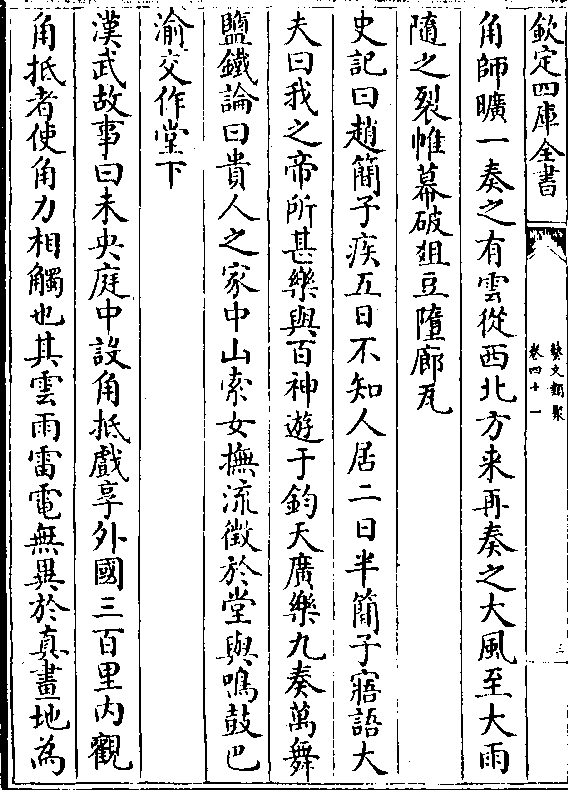 欽定四庫全書
藝文類聚
卷四十一
三
角師曠一奏之有雲從西北方來再奏之大風至大雨
隨之裂帷幕破俎豆隳廊瓦
史記曰趙簡子疾五日不知人居二日半簡子寤語大
夫曰我之帝所甚樂與百神遊于鈞天廣樂九奏萬舞
鹽鐵論曰貴人之家中山索女撫流徵於堂與鳴鼓巴
渝交作堂下
漢武故事曰未央庭中設角抵戲享外國三百里内觀
角抵者使角力相觸也其雲雨雷電無異於真畫地為